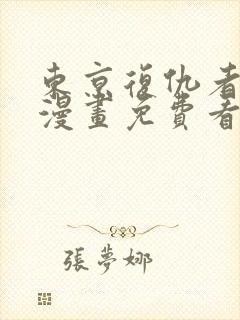 東京復仇者
漫畫免費看
張夢娜